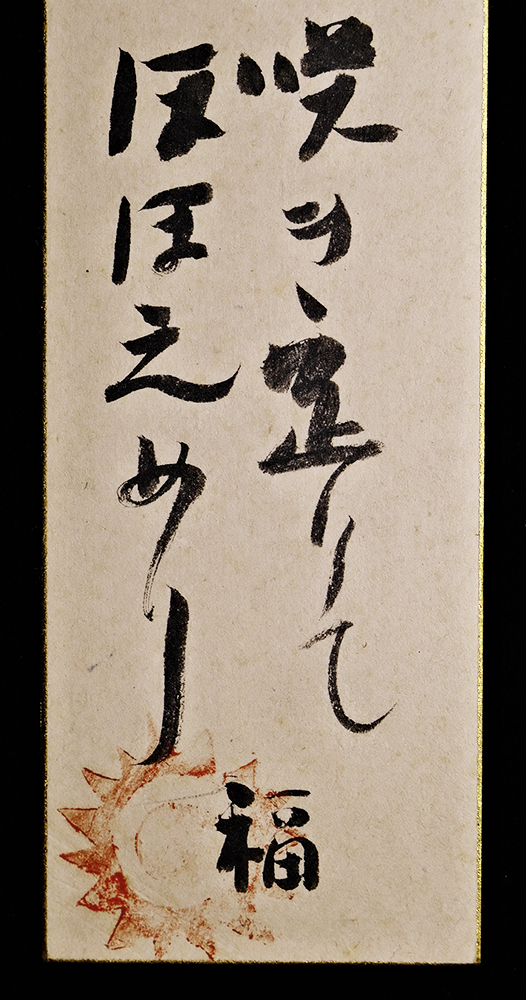 咲き定りて
ほほえめり
福